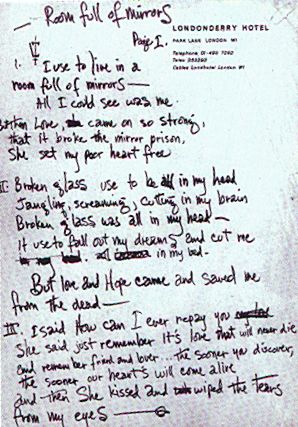 Room full of mirrors
Page I.
LONDONDERRY HOTEL
PARK LANE LONDON W1
Telephone 01-493 7292
Telex 263292
Cables Londhotel London W1
I. I use to live in a
room full of mirrors —
All I could see was me.
then Love, came on so strong,
that it broke the mirror prison,
She set my poor heart free
II: Broken glass use to be all in my head
Jangling, screaming, cutting in my brain
Broken glass was all in my head —
it use to fall out my dreams and cut me
in my bed —
But love and Hope came and saved me
from the dead —
III. I said How can I ever repay you
She said just remember It's love that will never die
and remember friend and lover.. the sooner you discover,
the sooner our heart's will come alive
and then She kissed and wiped the tears
from my eyes